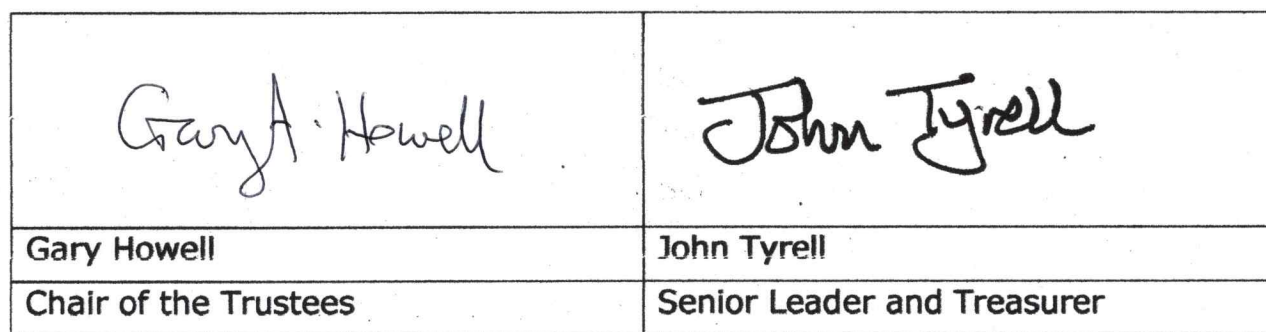 Gary A. Howell
John Tyrell
Gary Howell
John Tyrell
Chair of the Trustees
Senior Leader and Treasurer